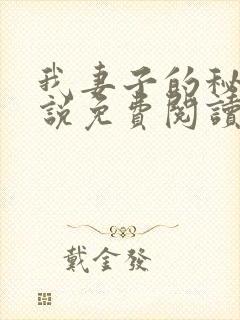 我妻子的秘
說免費閱讀
戴金發